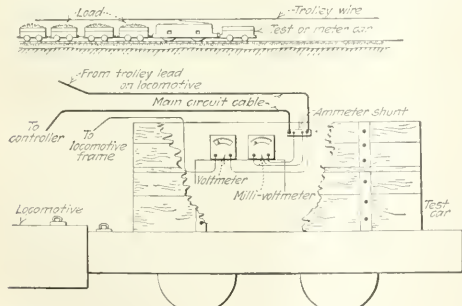 Load
Trolley wire
Test or meter car
From trolley lead
on locomotive
Main circuit cable
Ammeter shunt
To
controller
To
locomotive
frame
Voltmeter
Milli-voltmeter
Locomotive
Test
car